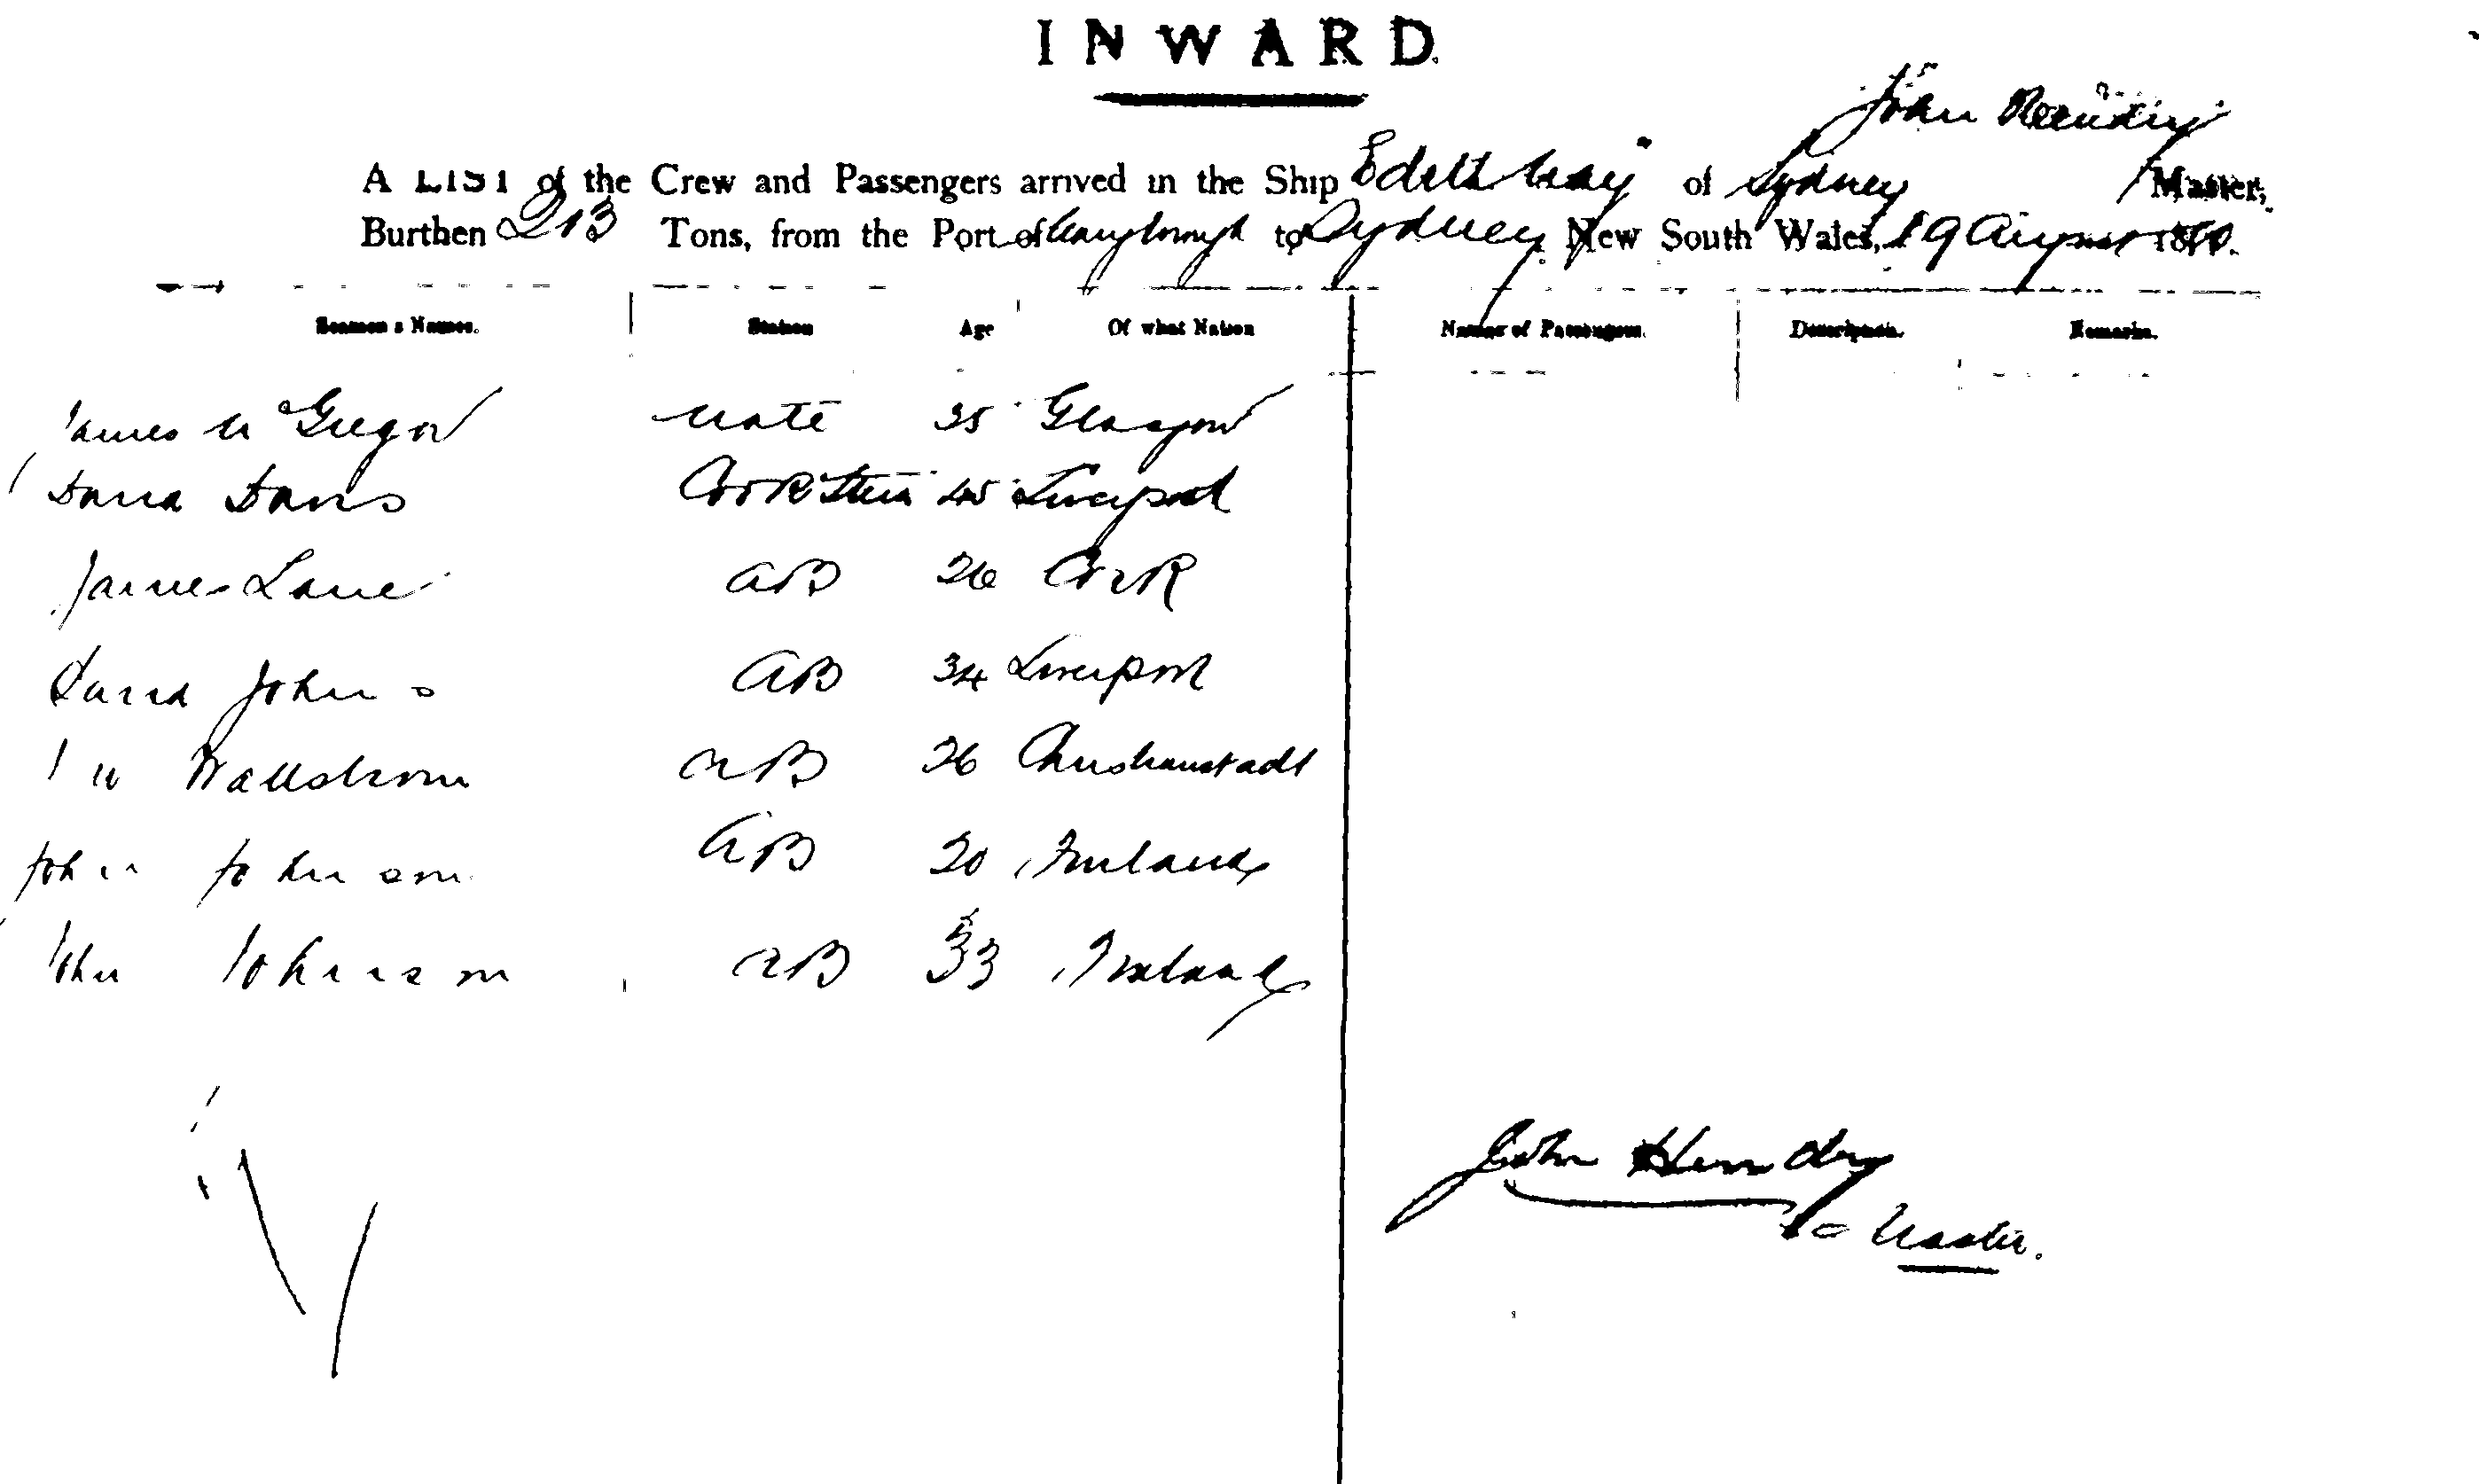 INWARD.
John Hendry
A LIST of the Crew and Passengers arrived in the Ship Edith May of Sydney Master,
Burthen 213 Tons, from the Port of Maryborough to Sydney New South Wales, 19 August 18
Seamen's Names. Station Age Of what Nation Names of Passengers. Description. Remarks.
James McGregor Mate 35 Glasgow
David Davis Cook Stew 45 Liverpool
James Lane AB 26 Cork
David Johns AB 34 Liverpool
Wallstrom AB 26 Christianstadt
John Johnson AB 20 Finland
John Johnson AB 33 Finland
John Hendry
Master.